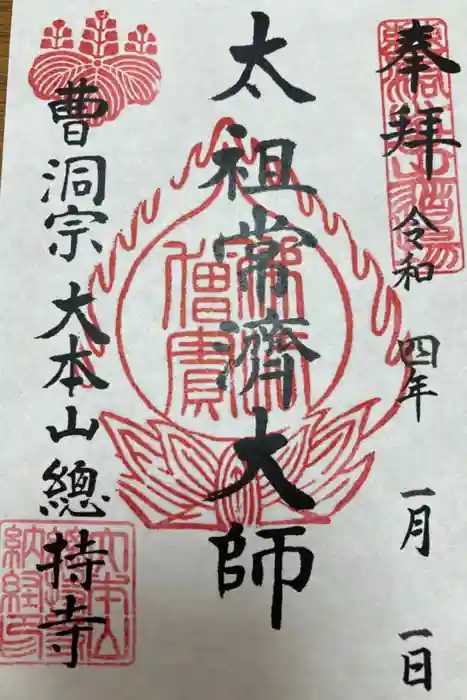 奉拝 令和 四年 一月 一日
太祖常濟大師
曹洞宗 大本山 總持寺